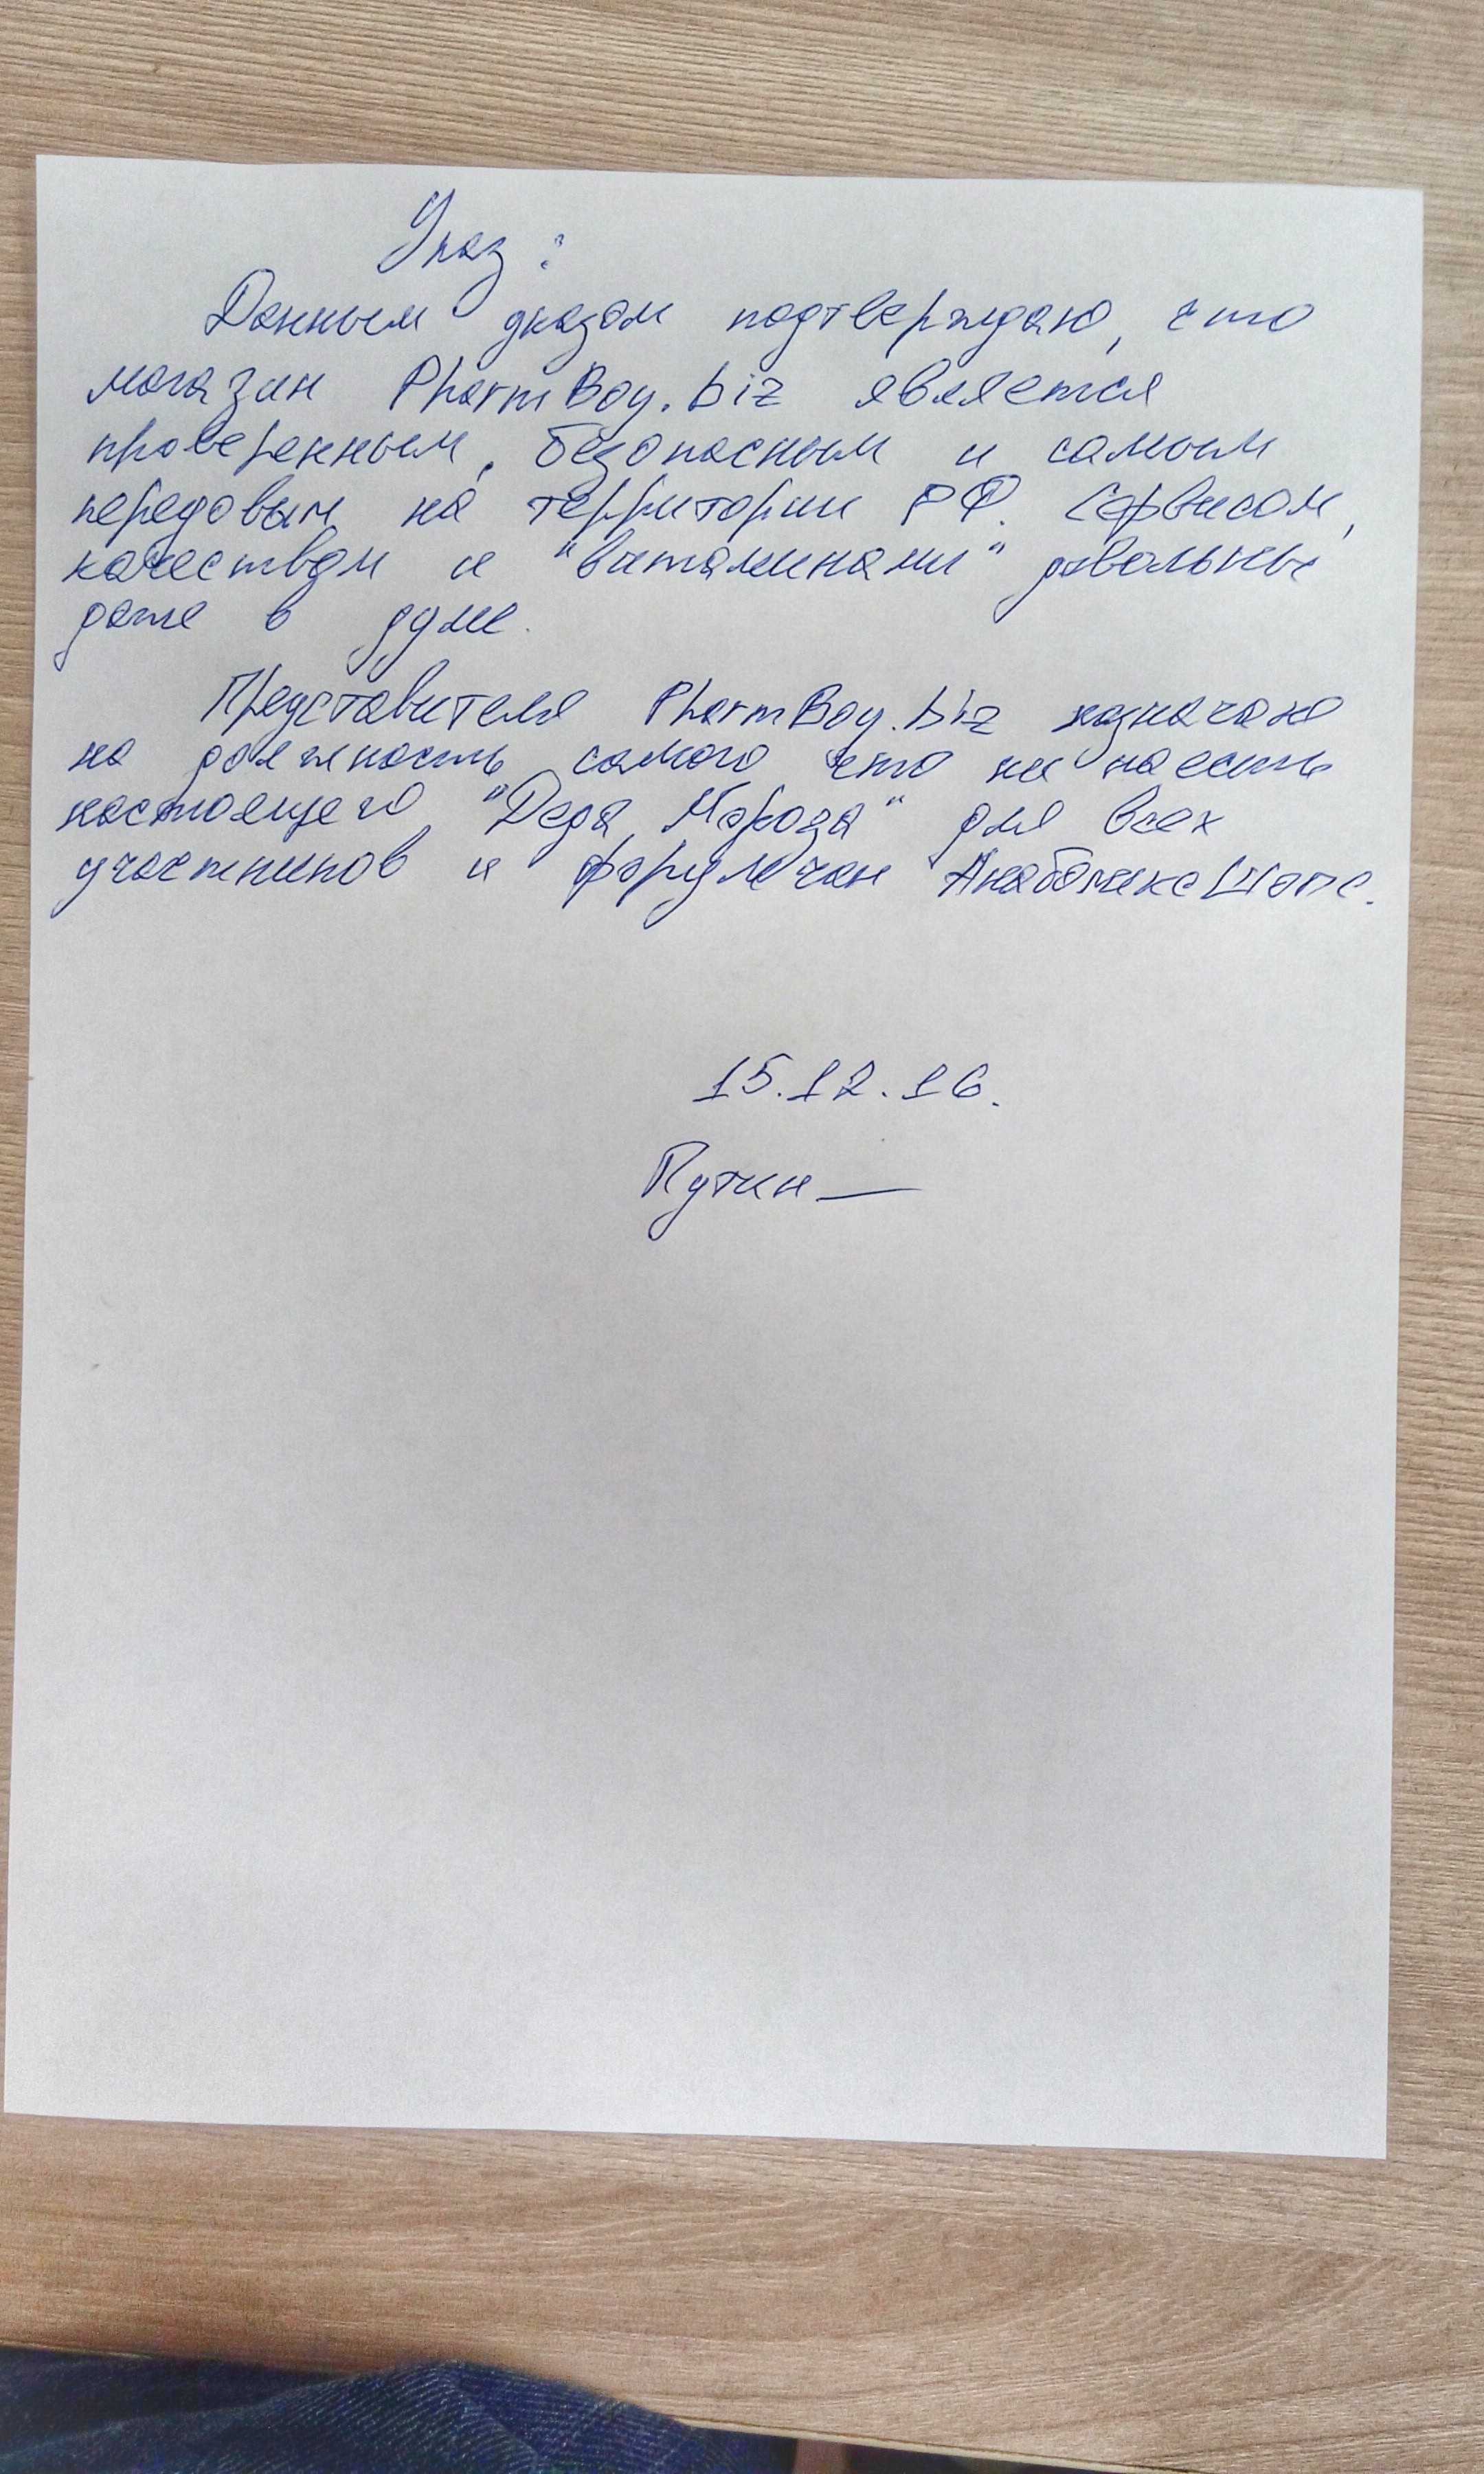 Указ:
Данным указом подтверждаю, что
магазин PharmBoy.biz является
проверенным, безопасным и самым
передовым на территории РФ. Сервисом,
качеством и "витаминами" довольны
даже в думе.
Представителя PharmBoy.biz назначаю
на должность самого что ни на есть
настоящего "Деда Мороза" для всех
участников и форумчан АнаболиксШопс.
15.12.16.
Путин